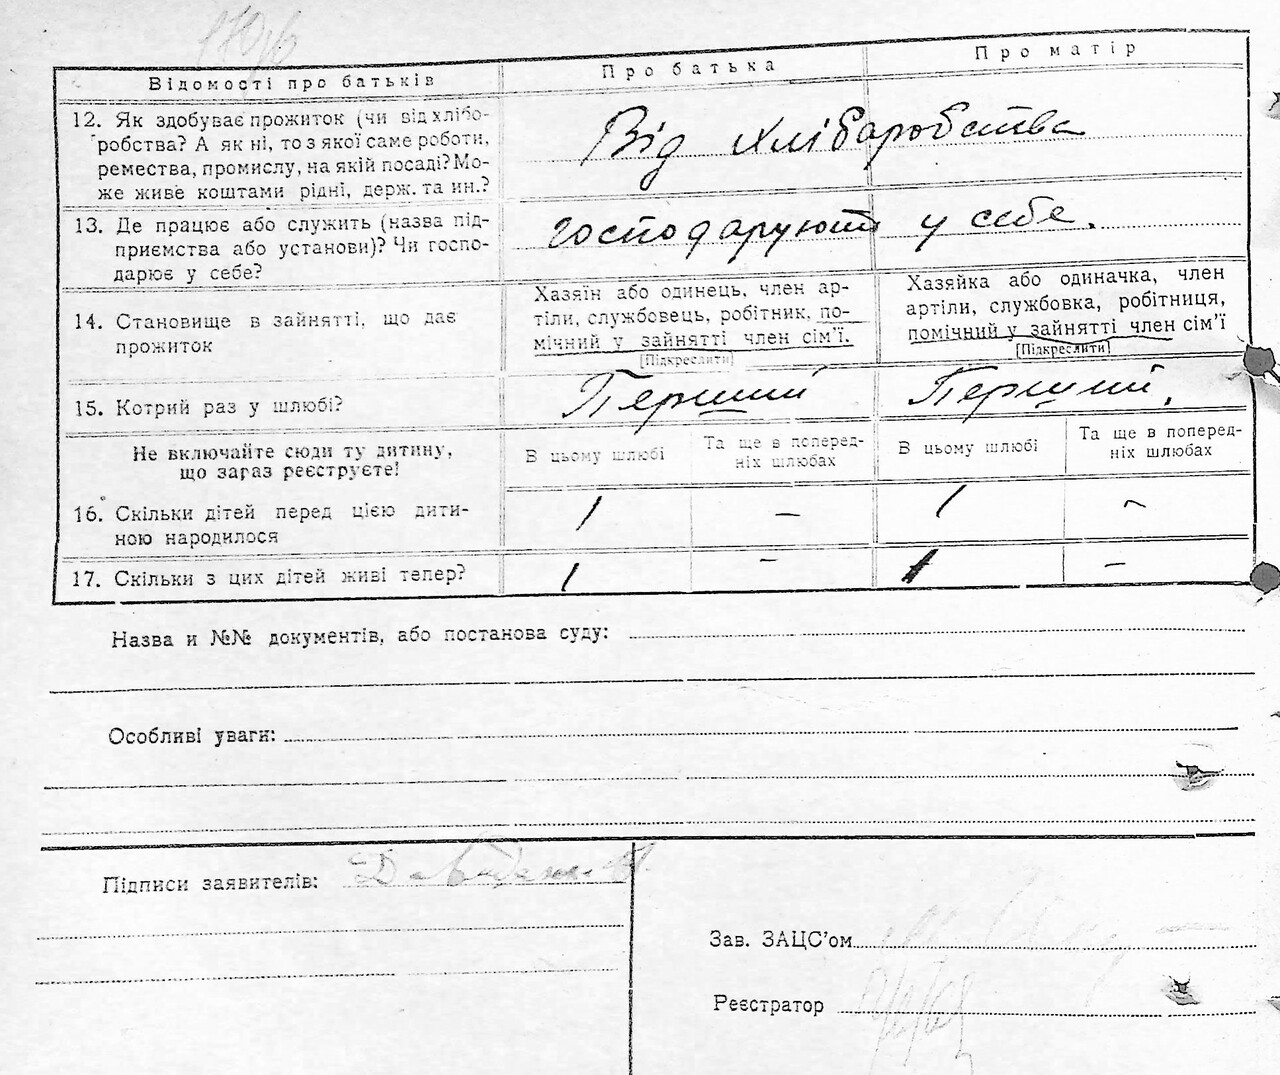 Відомості про батьків
Про батька
Про матір
12. Як здобуває прожиток (чи від хлібо-
робства? А як ні, то з якої саме роботи,
ремества, промислу, на якій посаді? Мо-
же живе коштами рідні, держ. та ин.?
Від хлібаробства
13. Де працює або служить (назва під-
приємства або установи)? Чи госпо-
дарює у себе?
господарують у себе.
14. Становище в зайнятті, що дає
прожиток
Хазяїн або одинець, член ар-
тіли, службовець, робітник, по-
мічний у зайнятті член сім'ї.
[Підкреслити]
Хазяйка або одиначка, член
артіли, службовка, робітниця,
помічний у зайнятті член сім'ї
[Підкреслити]
15. Котрий раз у шлюбі?
Перший
Перший.
Не включайте сюди ту дитину,
що зараз реєструєте!
В цьому шлюбі
Та ще в поперед-
ніх шлюбах
В цьому шлюбі
Та ще в поперед-
ніх шлюбах
16. Скільки дітей перед цією дити-
ною народилося
1 – 1 –
17. Скільки з цих дітей живі тепер?
1 – 1 –
Назва и №№ документів, або постанова суду:
Особливі уваги:
Підписи заявителів:
Зав. ЗАЦС'ом
Реєстратор